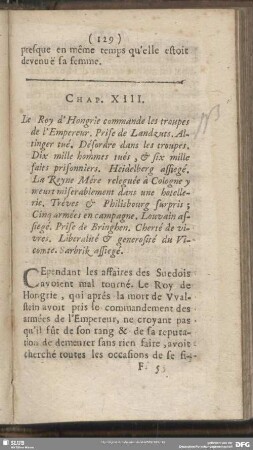 ( 129 )
presque en même temps qu'elle estoit
devenuë sa femme.
CHAP. XIII.
Le Roy d'Hongrie commande les troupes
de l'Empereur. Prise de Landzuts. Al-
tinger tué. Désordre dans les troupes.
Dix mille hommes tués, & six mille
faits prisonniers. Heidelberg assiegé.
La Reyne Mére releguée à Cologne y
meurt miserablement dans une hostelle-
rie. Tréves & Philisbourg surpris;
Cinq armées en campagne. Louvain as-
siegé. Prise de Bringhen. Cherté de vi-
vres. Liberalité & generosité du Vi-
comte. Sarbrik assiegé.
CEpendant les affaires des Suedois
avoient mal tourné. Le Roy de
Hongrie, qui aprés la mort de Vval-
stein avoit pris le commandement des
armées de l'Empereur, ne croyant pas
qu'il fût de son rang & de sa reputa-
tion de demeurer sans rien faire, avoit
cherché toutes les occasions de se si-
F. 5
SLUB
DFG